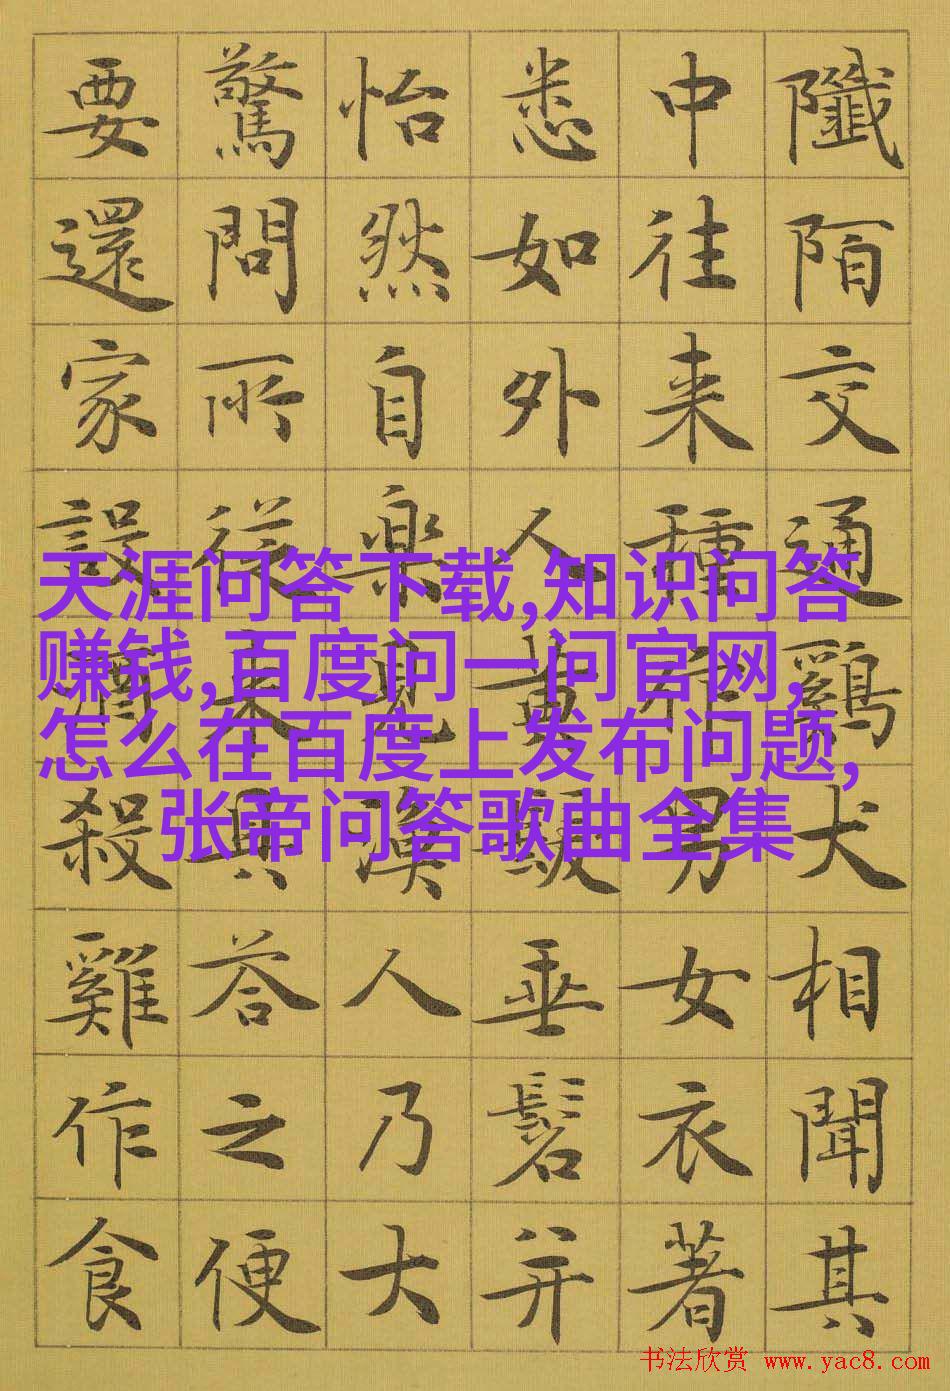 陌交通鷄犬相聞其
中往来種作男女衣著
悉如外人黄髮垂髫并
怡然自楽見漁人乃大
驚問所從来具荅之便
要還家設酒殺雞作食
天涯问答下载,知识问答
赚钱,百度问一问官网,
怎么在百度上发布问题,
张帝问答歌曲全集
书法欣赏 www.yac8.com